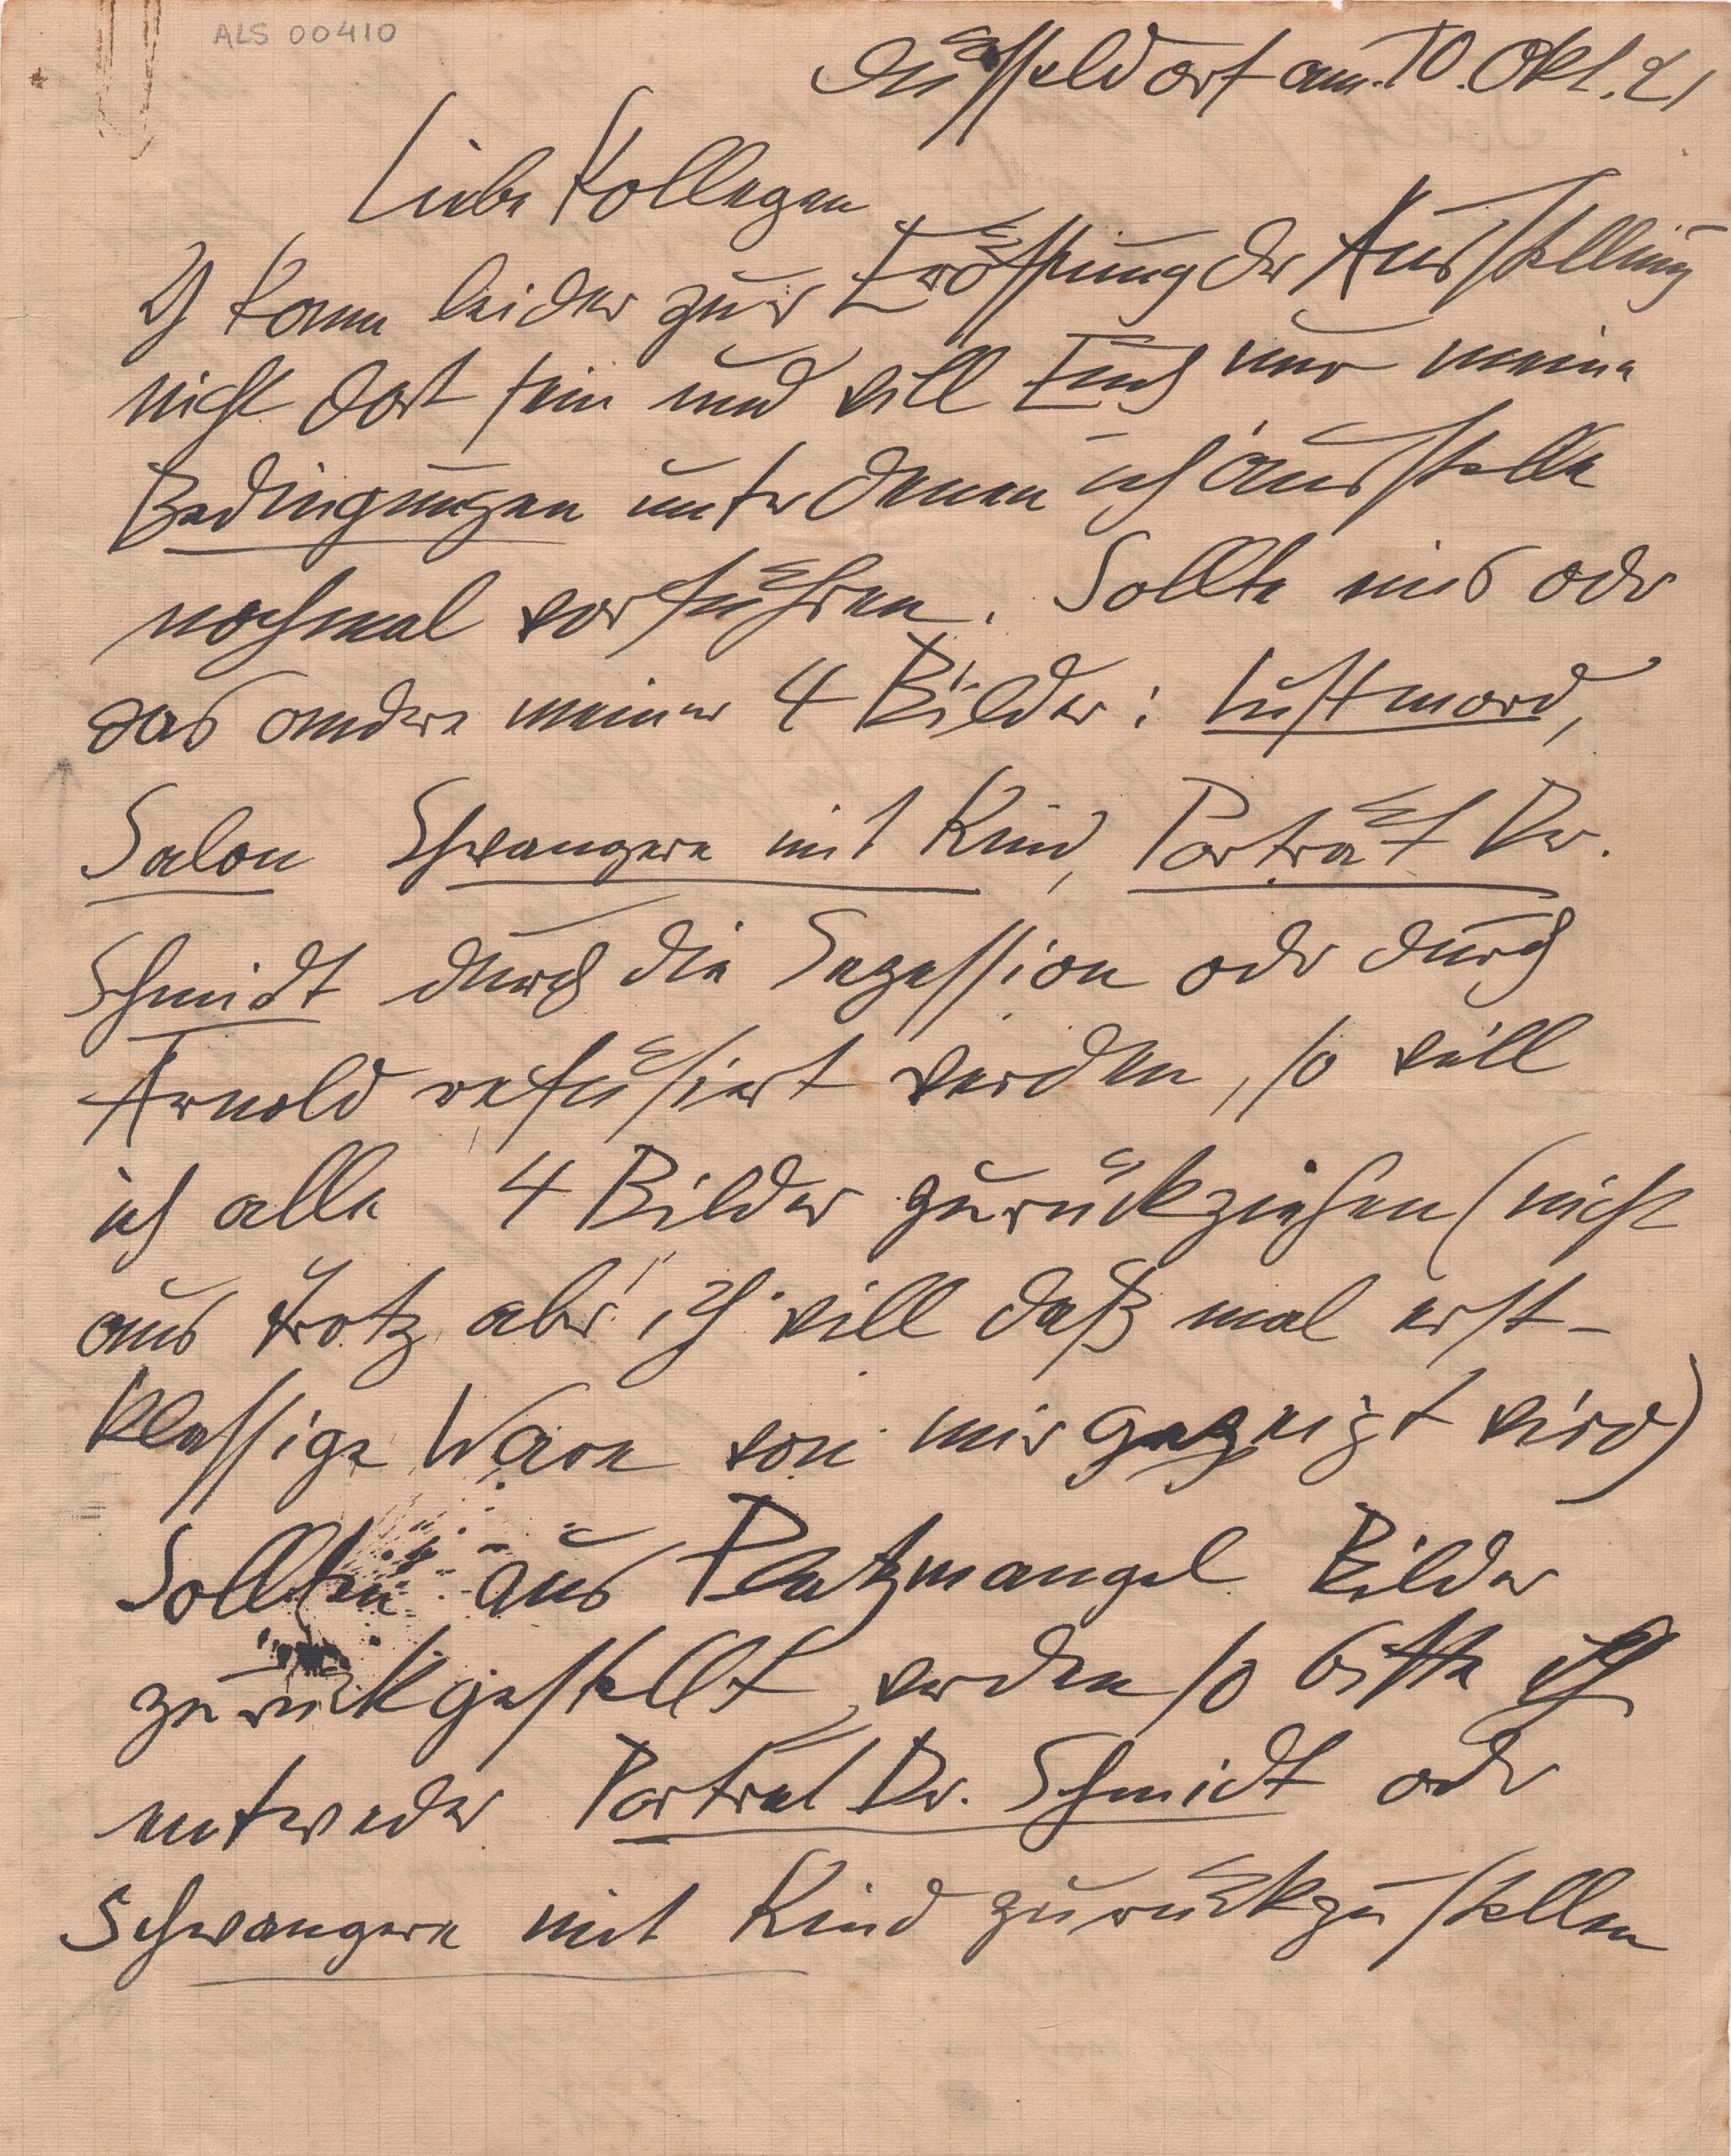 ALS 00410
Düsseldorf am. 10. Okt. 21
Liebe Kollegen
Ich kann leider zur Eröffnung der Ausstellung
nicht dort sein und will Euch nur meine
Bedingungen unter denen ich ausstelle
nochmal vorführen. Sollte eins oder
das andere meiner 4 Bilder: Lustmord,
Salon Schwangere mit Kind, Porträt Dr.
Schmidt durch die Sezession oder durch
Arnold refüsiert werden, so will
ich alle 4 Bilder zurückziehen (nicht
aus Trotz aber ich will daß mal erst-
klassige Ware von mir gezeigt wird)
Sollten aus Platzmangel Bilder
zurückgestellt werden so bitte ich
entweder Porträt Dr. Schmidt oder
Schwangere mit Kind zurückzustellen